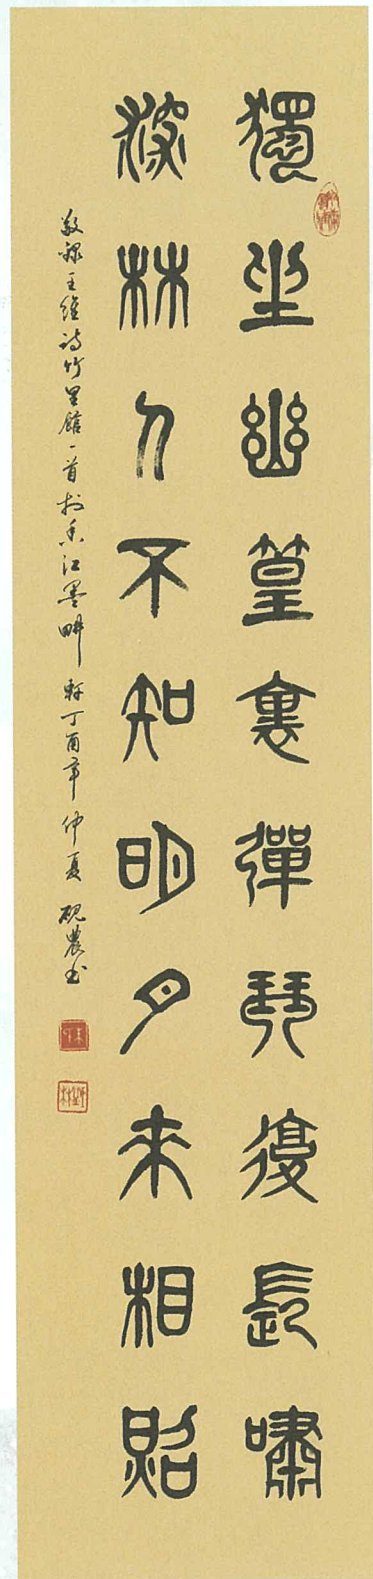 獨坐幽篁裏彈琴復長嘯
深林人不知明月來相照
敬録王維詩竹里館一首於香江墨畊軒丁酉年仲夏硯農书